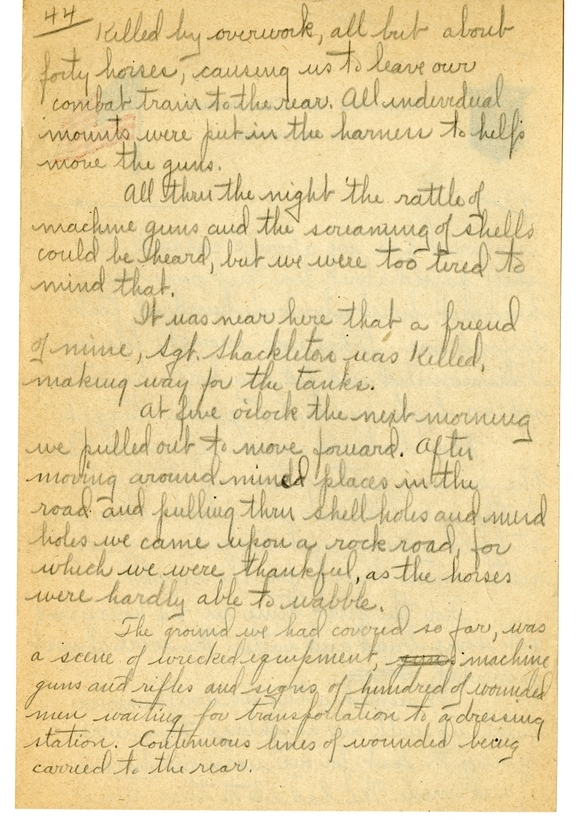 44
Killed by overwork, all but about
forty horses, causing us to leave our
combat train to the rear. All individual
mounts were put in the harness to help
move the guns.
All thru the night the rattle of
machine guns and the screaming of shells
could be heard, but we were too tired to
mind that.
It was near here that a friend
of mine, Sgt. Shackleton was Killed,
making way for the tanks.
At five o'clock the next morning
we pulled out to move forward. After
moving around mined places in the
road and pulling thru shell holes and mud
holes we came upon a rock road, for
which we were thankful, as the horses
were hardly able to wabble.
The ground we had covered so far, was
a scene of wrecked equipment, machine
guns and rifles and signs of hundred of wounded
men waiting for transportation to a dressing
station. Continuous lines of wounded being
carried to the rear.